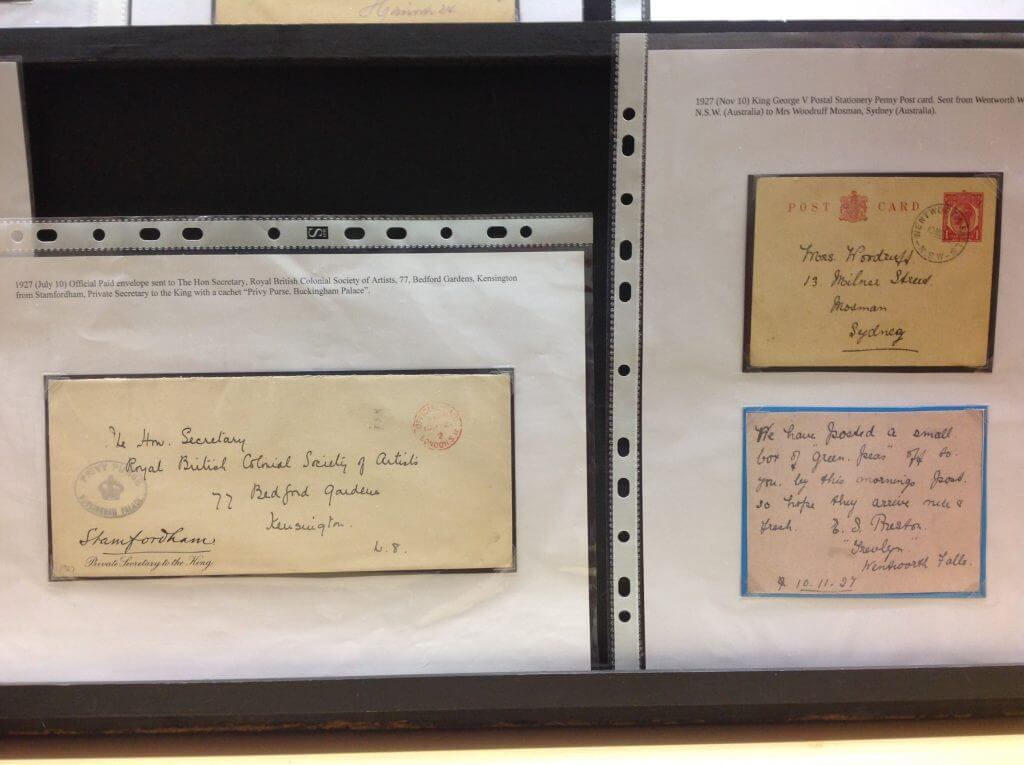 Hannover 24
1927 (July 10) Official Paid envelope sent to The Hon Secretary, Royal British Colonial Society of Artists, 77, Bedford Gardens, Kensington
from Stamfordham, Private Secretary to the King with a cachet “Privy Purse, Buckingham Palace”.
The Hon. Secretary
Royal British Colonial Society of Artists
77 Bedford Gardens
Kensington.
PRIVY PURSE
BUCKINGHAM PALACE
LONDON S.W.
Stamfordham
Private Secretary to the King
1927 (Nov 10) King George V Postal Stationery Penny Post card. Sent from Wentworth
N.S.W. (Australia) to Mrs Woodruff Mosman, Sydney (Australia).
POST CARD
WENTWORTH FALLS
N.S.W
Woodruff
13 Milner Street
Mosman
Sydney
We have posted a small
box of "green. peas" off to.
you. by this mornings post.
so hope they arrive nice &
fresh. E. S. Preston.
"Trevlyn."
Wentworth Falls.
10.11.27